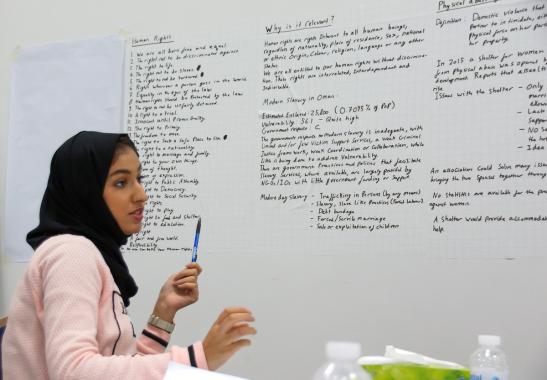 Human Rights
1. We are all born free and equal
2. The right not to be discriminated against
3. The right to life
4. The right not to be slaves
The right not to be tortured
Rights wherever a person goes in the world
7. Equality in the eyes of the law
8. Human rights should be protected by the law
9. The right to not be unfairly detained
A right to a trial
Innocent until Proven Guilty
The right to Privacy
The freedom to move
The right to Seek a Safe Place to live
right to a nationality
right to marriage and family
right to your own things
of thought
or expression
right to Public Assembly
right to Democracy
right to Social Security
right
to play
right to food and shelter
right to education
A fair and free world
Responsibility
Why is it relevant?
Human rights are rights Inherent to all human beings,
regardless of nationality, place of residence, Sex, national
or ethnic Origin, Colour, religion, language or any other
Status
We are all entitled to our human rights without discrimina-
tion. These rights are interrelated, Interdependent and
Indivisible.
Modern Slavery in Oman:
Estimated Enslaved: 25,800 (0.7035% of PoP)
Vulnerability: 36.1 - Quite high
Government response: C
The government response to modern slavery is inadequate, with
limited and/or few Victim Support Services, a weak Criminal
Justice framework, weak Coordination or Collaboration, while
little is being done to address Vulnerability.
There are government Practices and policies that facilitate
Slavery. Services, where available, are largely provided by
NGOs/IOs with little government funding or Support
Modern day slavery - Trafficking in Persons (by any means)
- Slavery, Slave like Practices (forced labour)
- Debt bondage
- Forced/Servile marriage
- Sale or exploitation of children
Physical
Definition: Domestic violence that
Partner to intimidate, eith
Physical force on her part
her property
In 2015 a Shelter for Women
from physical abuse was opened b
development. Reports that assault i
rise.
Issues with the Shelter - Only
married
allow
- Late
Suppo
- No S
the h
- Idea
An association Could Solve many issu
bringing the two Spouses together throug
No Statistics are available for the pre
against women.
A Shelter would provide accommodat
help.